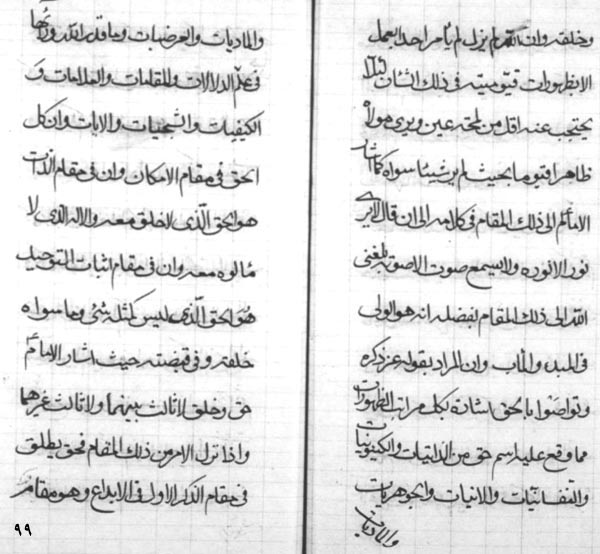 وخلقه وان الله لم يزل لم يأمر احدا بعمل
الا بظهورات قيوميته فى ذلك الشأن لئلا
يحتجب عنه اقل من لمحة عين ويرى مولاه
ظاهرا قيوما بحيث لم ير شيئا سواه كما اشار
الامام الى ذلك المقام فى كلامه الى ان قال لا يرى
نور الا نوره ولا يسمع صوت الا صوته بلغنى
الله الى ذلك المقام بفضله انه هو الولى
فى المبدء والمآب وان المراد بقوله عز ذكره
وتواصوا بالحق اشارة بكل مراتب الظهورات
مما وقع عليه اسم حق من الذاتيات والكينونيات
والنفسانيات والانيات والجوهريات
والماديات
والماديات والعرضيات وما قدر الله ورائها
فى علم الدلالات والمقامات والعلامات و
الكيفيات والشبحيات والايات وان كل
الحق فى مقام الامكان وان فى مقام الذات
هو الحق الذى لا خلق معه والاله الذى لا
مألوه معه وان فى مقام اثبات التوحيد
هو الحق الذى ليس كمثله شئ وما سواه
خلقه وفى قبضته حيث اشار الامام
حق وخلق لا ثالث بينهما ولا ثالث غيرهما
واذا نزل الامر من ذلك المقام فحق يطلق
فى مقام الذكر الاول فى الابداع وهو مقام
٩٩